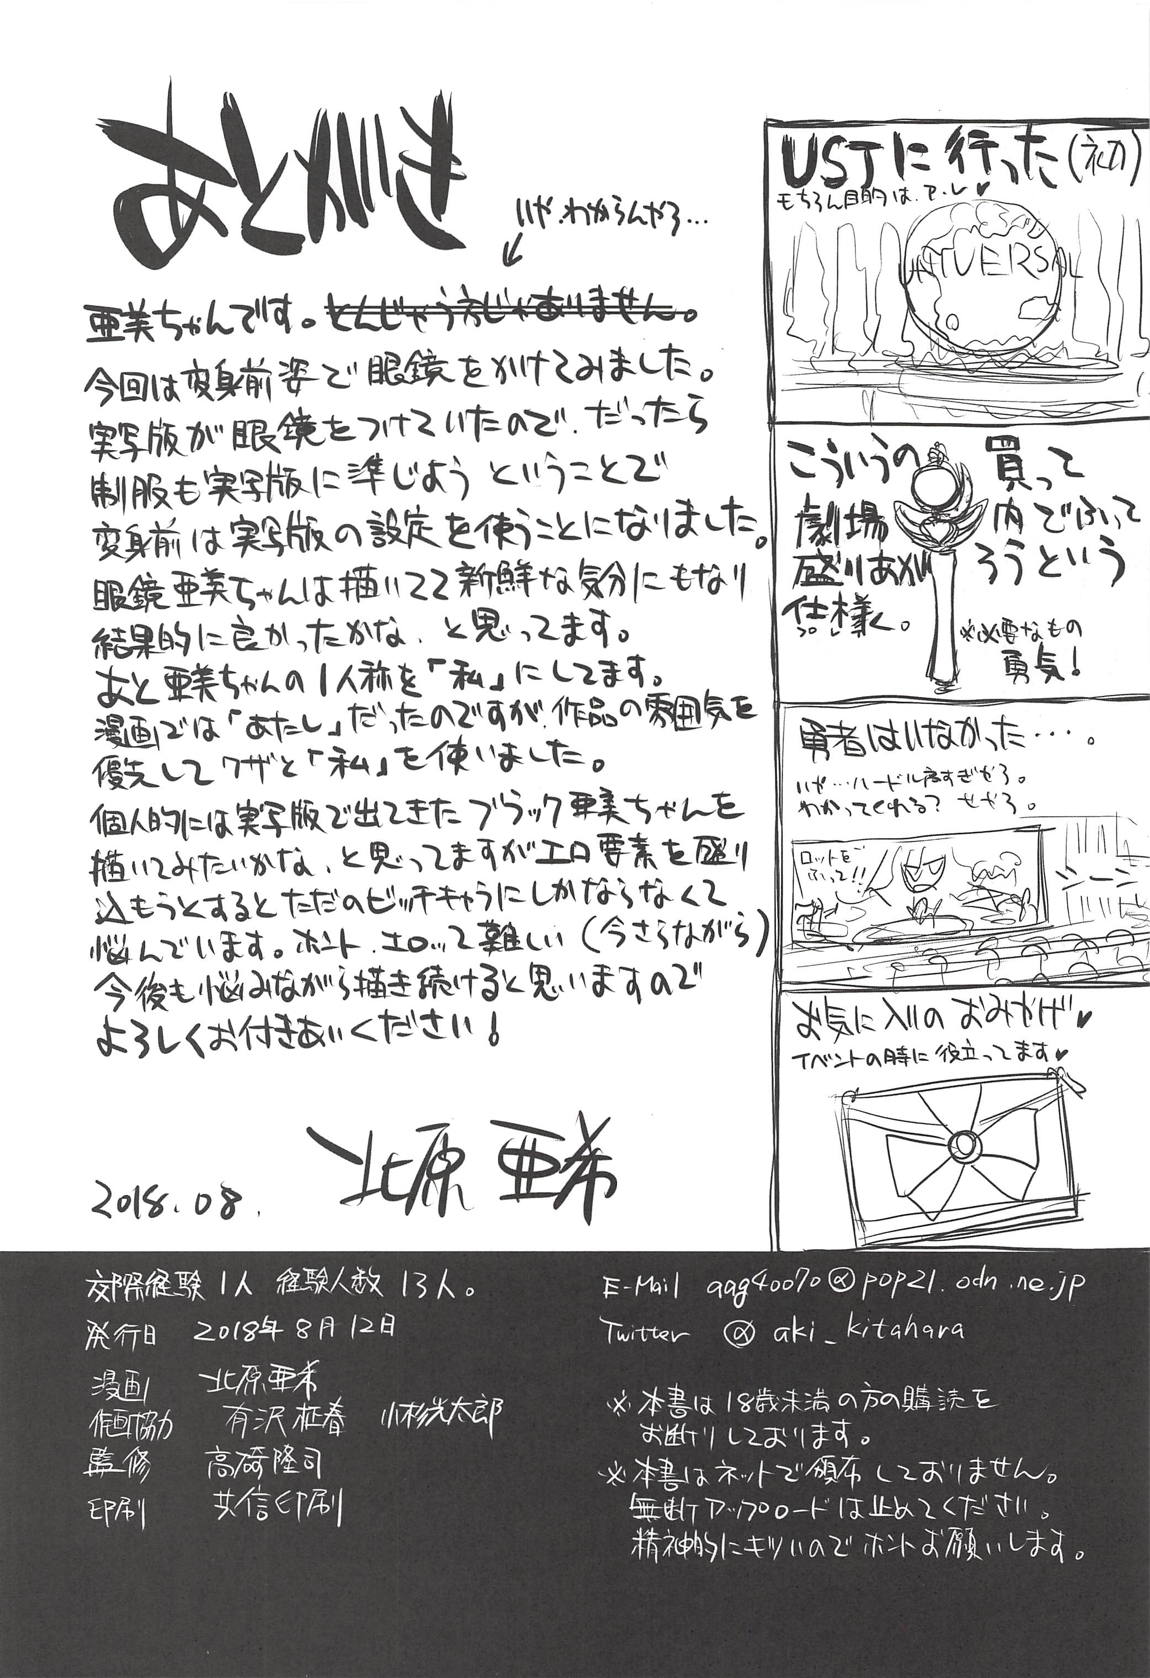 あとがき
いや、わからんやろ…
亜美ちゃんです。とんじゃう方じゃありません。
今回は変身前姿で眼鏡をかけてみました。
実写版が眼鏡をつけていたので、だったら
制服も実写版に準じよう ということで
変身前は実写版の設定を使うことになりました。
眼鏡亜美ちゃんは描いてて新鮮な気分にもなり
結果的に良かったかな、と思ってます。
あと亜美ちゃんの1人称を「私」にしてます。
漫画では「あたし」だったのですが、作品の雰囲気を
優先してワザと「私」を使いました。
個人的には実写版で出てきたブラック亜美ちゃんを
描いてみたいかな、と思ってますがエロ要素を盛り
込もうとするとただのビッチキャラにしかならなくて
悩んでいます。ホント、エロって難しい(今さらながら)
今後も悩みながら描き続けると思いますので
よろしくお付きあいください!
2018.08.
北原亜希
USJに行った(初)
もちろん目的は、
UNIVERSAL
こういうの買って
劇場内でふって
盛りあがろうという
仕様。
※必要なもの
勇気!
勇者はいなかった…。
いや…ハードル高すぎやろ。
わかってくれる? せやろ。
ロッドを
ふって!!
シーン
お気に入りのおみやげ♥
イベントの時に役立ってます♥
交際経験 1人 経験人数 13人。
発行日 2018年8月12日
漫画 北原亜希
作画協力 有沢柾春 小杉光太郎
監修 高崎隆司
印刷 共信印刷
E-Mail aag40070@pop21.odn.ne.jp
Twitter @aki_kitahara
※本書は18歳未満の方の購読を
お断りしております。
※本書はネットで頒布しておりません。
無断アップロードは止めてください。
精神的にキツいのでホントお願いします。